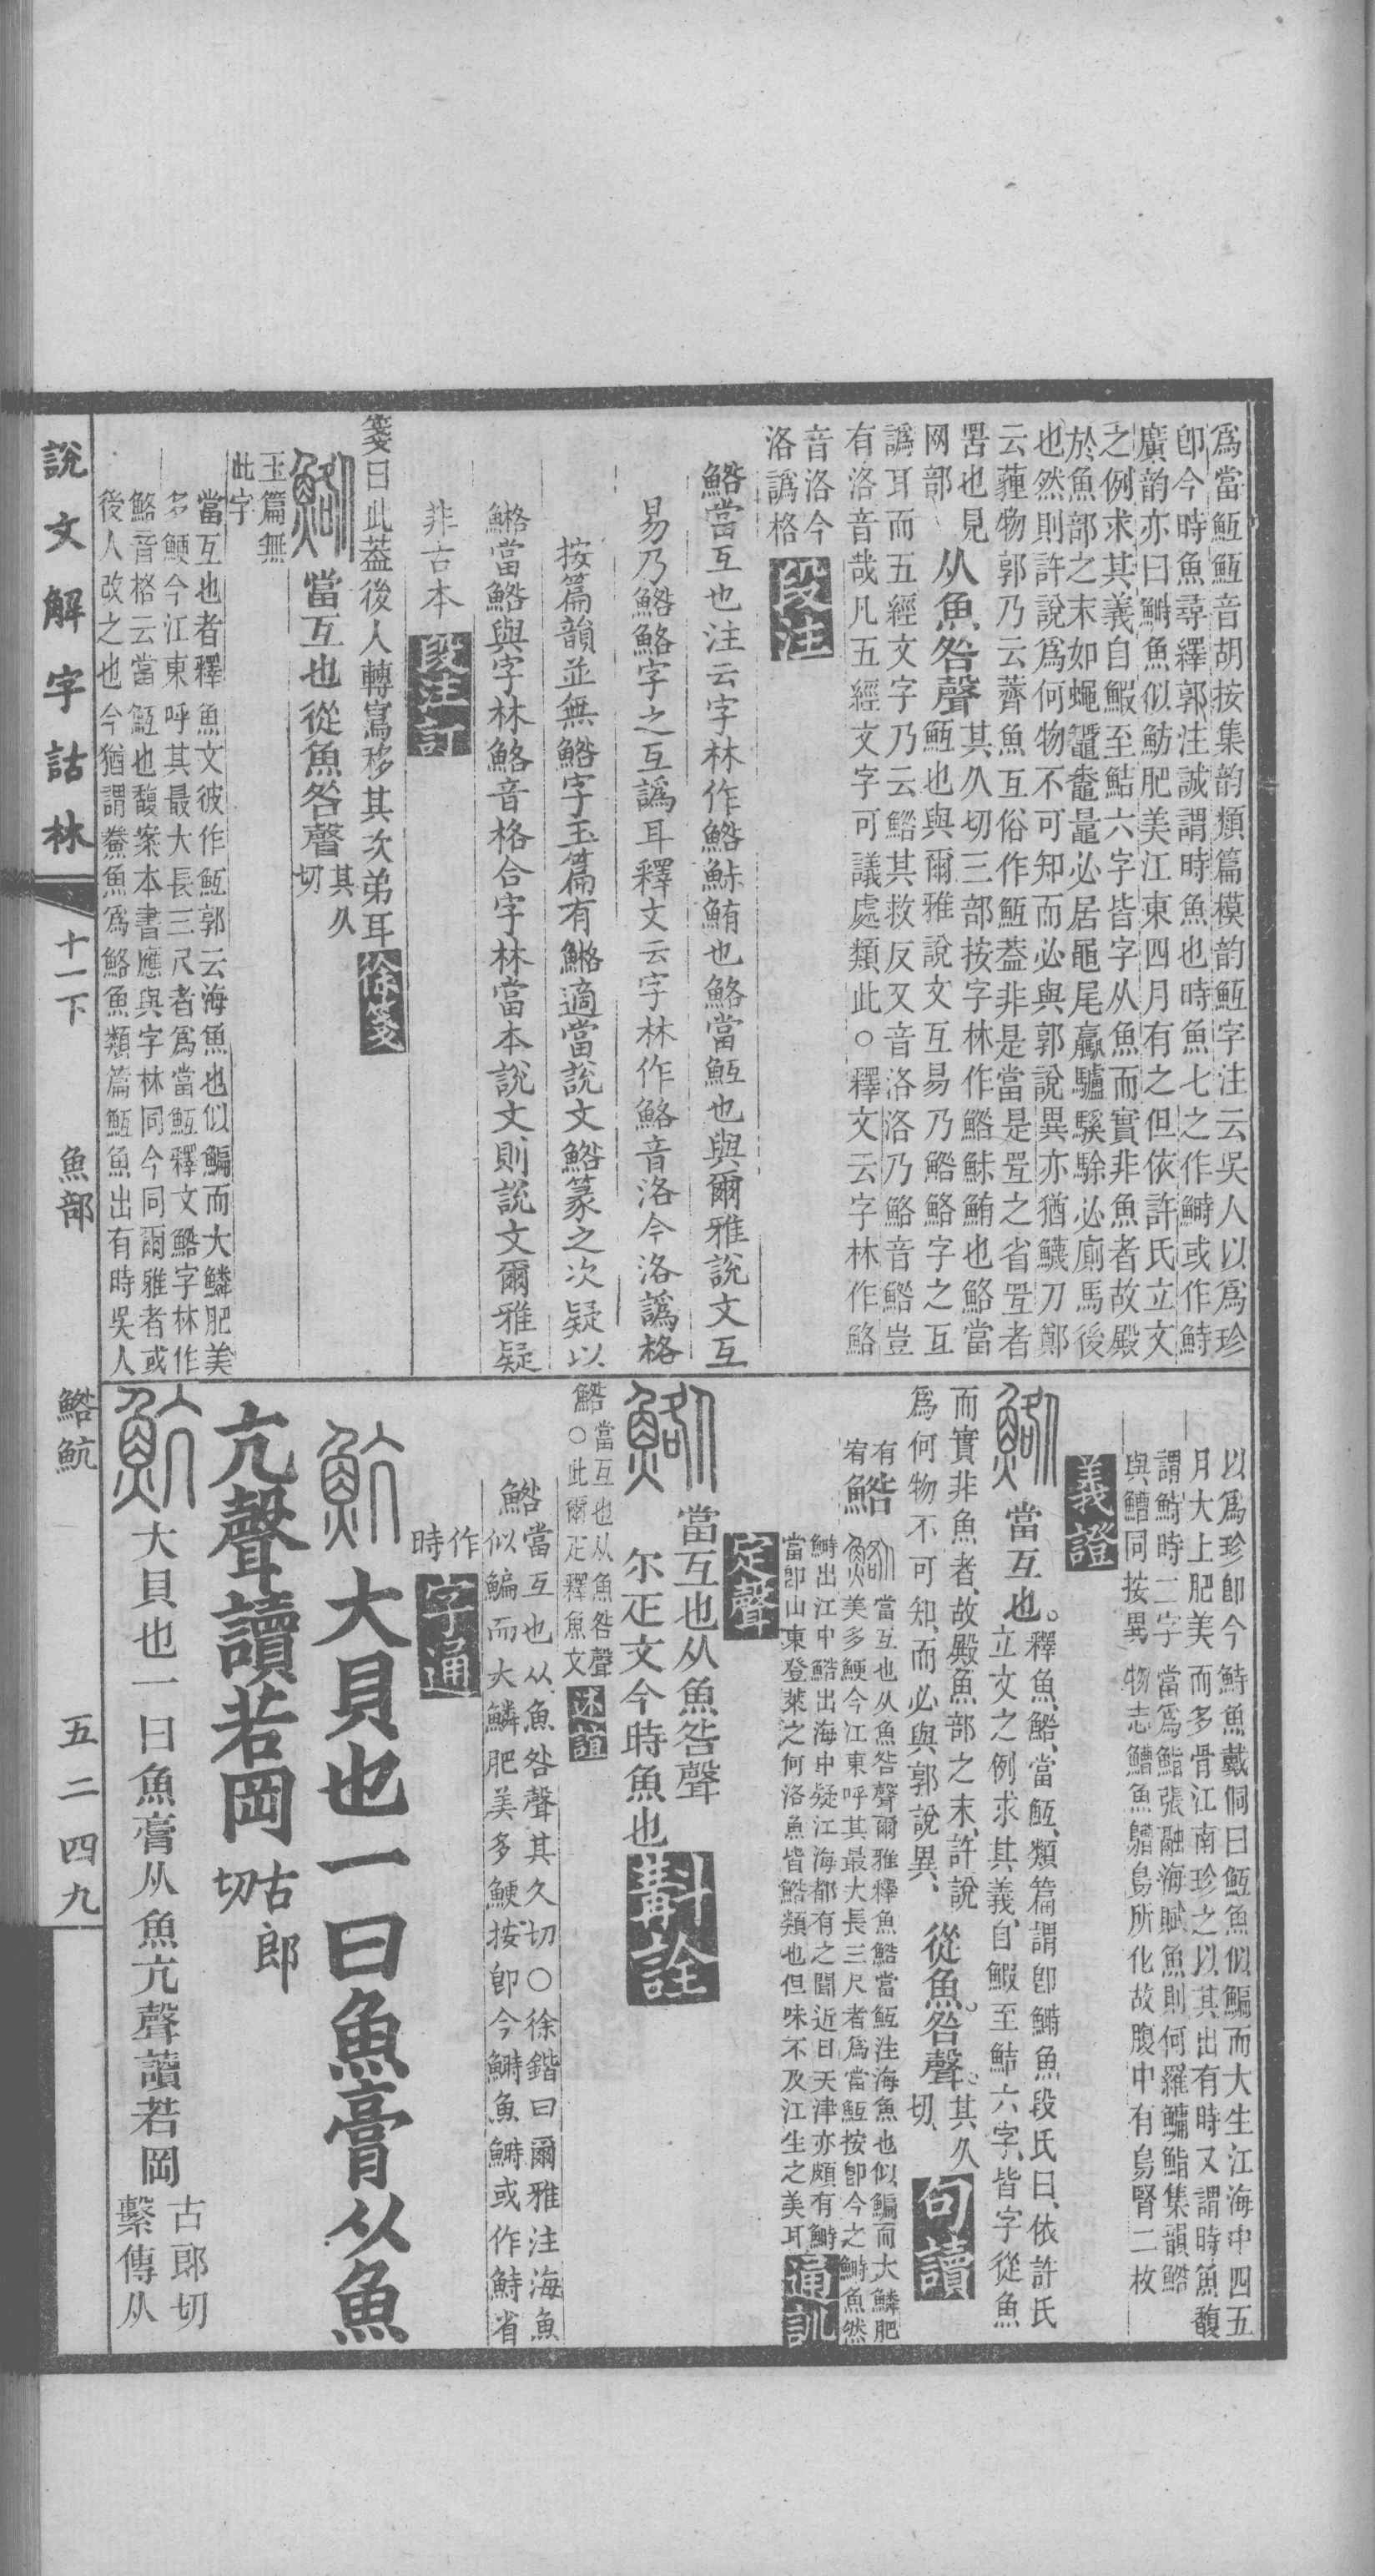 爲當魱魱音胡按集韵類篇模韵魱字注云吳人以爲珍
卽今時魚尋繹郭注誠謂時魚也時魚七之作鰣或作鰣
廣韵亦曰鰣魚似魴肥美江東四月有之但依許氏立文
之例求其義自鰕至鮚六字皆字从魚而實非魚者故殿
於魚部之末如蠅鼅鼄鼂必居黽尾驘驢騠駼必廁馬後
也然則許說爲何物不可知而必與郭說異亦猶鱴刀鄭
云薶物郭乃云薺魚互俗作魱葢非是當是罝之省罝者
罟也見
网部
从魚咎聲
其久切三部按字林作鯦鮛鮪也鮥當
魱也與爾雅說文互易乃鯦鮥字之互
譌耳而五經文字乃云鯦其救反又音洛洛乃鮥音鯦豈
有洛音哉凡五經文字可議處類此○釋文云字林作鮥
音洛今
洛譌格
段注
鯦當互也注云字林作鯦鮛鮪也鮥當魱也與爾雅說文互
易乃鯦鮥字之互譌耳釋文云字林作鮥音洛今洛譌格
按篇韻並無鯦字玉篇有鱃適當說文鯦篆之次疑以
鱃當鯦與字林鮥音格合字林當本說文則說文爾雅疑
非古本
段注訂
箋曰此葢後人轉寫移其次弟耳
徐箋
當互也從魚咎聲
其久
切
玉篇無
此字
當互也者釋魚文彼作魱郭云海魚也似鯿而大鱗肥美
多鯁今江東呼其最大長三尺者爲當魱釋文鯦字林作
鮥音格云當魱也馥案本書應與字林同今同爾雅者或
後人改之也今猶謂鮝魚爲鮥魚類篇魱魚出有時吳人
以爲珍卽今鰣魚戴侗曰魱魚似鯿而大生江海中四五
月大上肥美而多骨江南珍之以其出有時又謂時魚馥
謂鰣時二字當爲鮨張融海賦魚則何羅鱅鮨集韻鯦
與鰽同按異物志鰽魚鷦鳥所化故腹中有鳥腎二枚
義證
當互也。
釋魚鯦、當魱、類篇謂卽鰣魚段氏曰、依許氏
立文之例求其義、自鰕至鮚六字、皆字從魚
而實非魚者、故殿魚部之末、許說
爲何物不可知、而必與郭說異、
從魚。咎聲。
其久
切、
句讀
有
宥
鯦
當互也从魚咎聲爾雅釋魚鯦當魱注海魚也似鯿而大鱗肥
美多鯁今江東呼其最大長三尺者爲當魱按卽今之鰣魚然
鰣出江中鯦出海中疑江海都有之聞近日天津亦頗有鰣
當卽山東登萊之何洛魚皆鯦類也但味不及江生之美耳
通訓
定聲
當互也从魚咎聲
尔疋文今時魚也
斠詮
當互也从魚咎聲
鯦○此爾疋釋魚文
述誼
鯦
當互也从魚咎聲其久切○徐鍇曰爾雅注海魚
似鯿而大鱗肥美多鯁按卽今鰣魚鰣或作鰣省
作
時
字通
大貝也一曰魚膏从魚
亢聲讀若岡
古郎
切
大貝也一曰魚膏从魚亢聲讀若岡
古郎切
繫傳从
說文解字詁林
十一下
魚部
鯦魧
五二四九